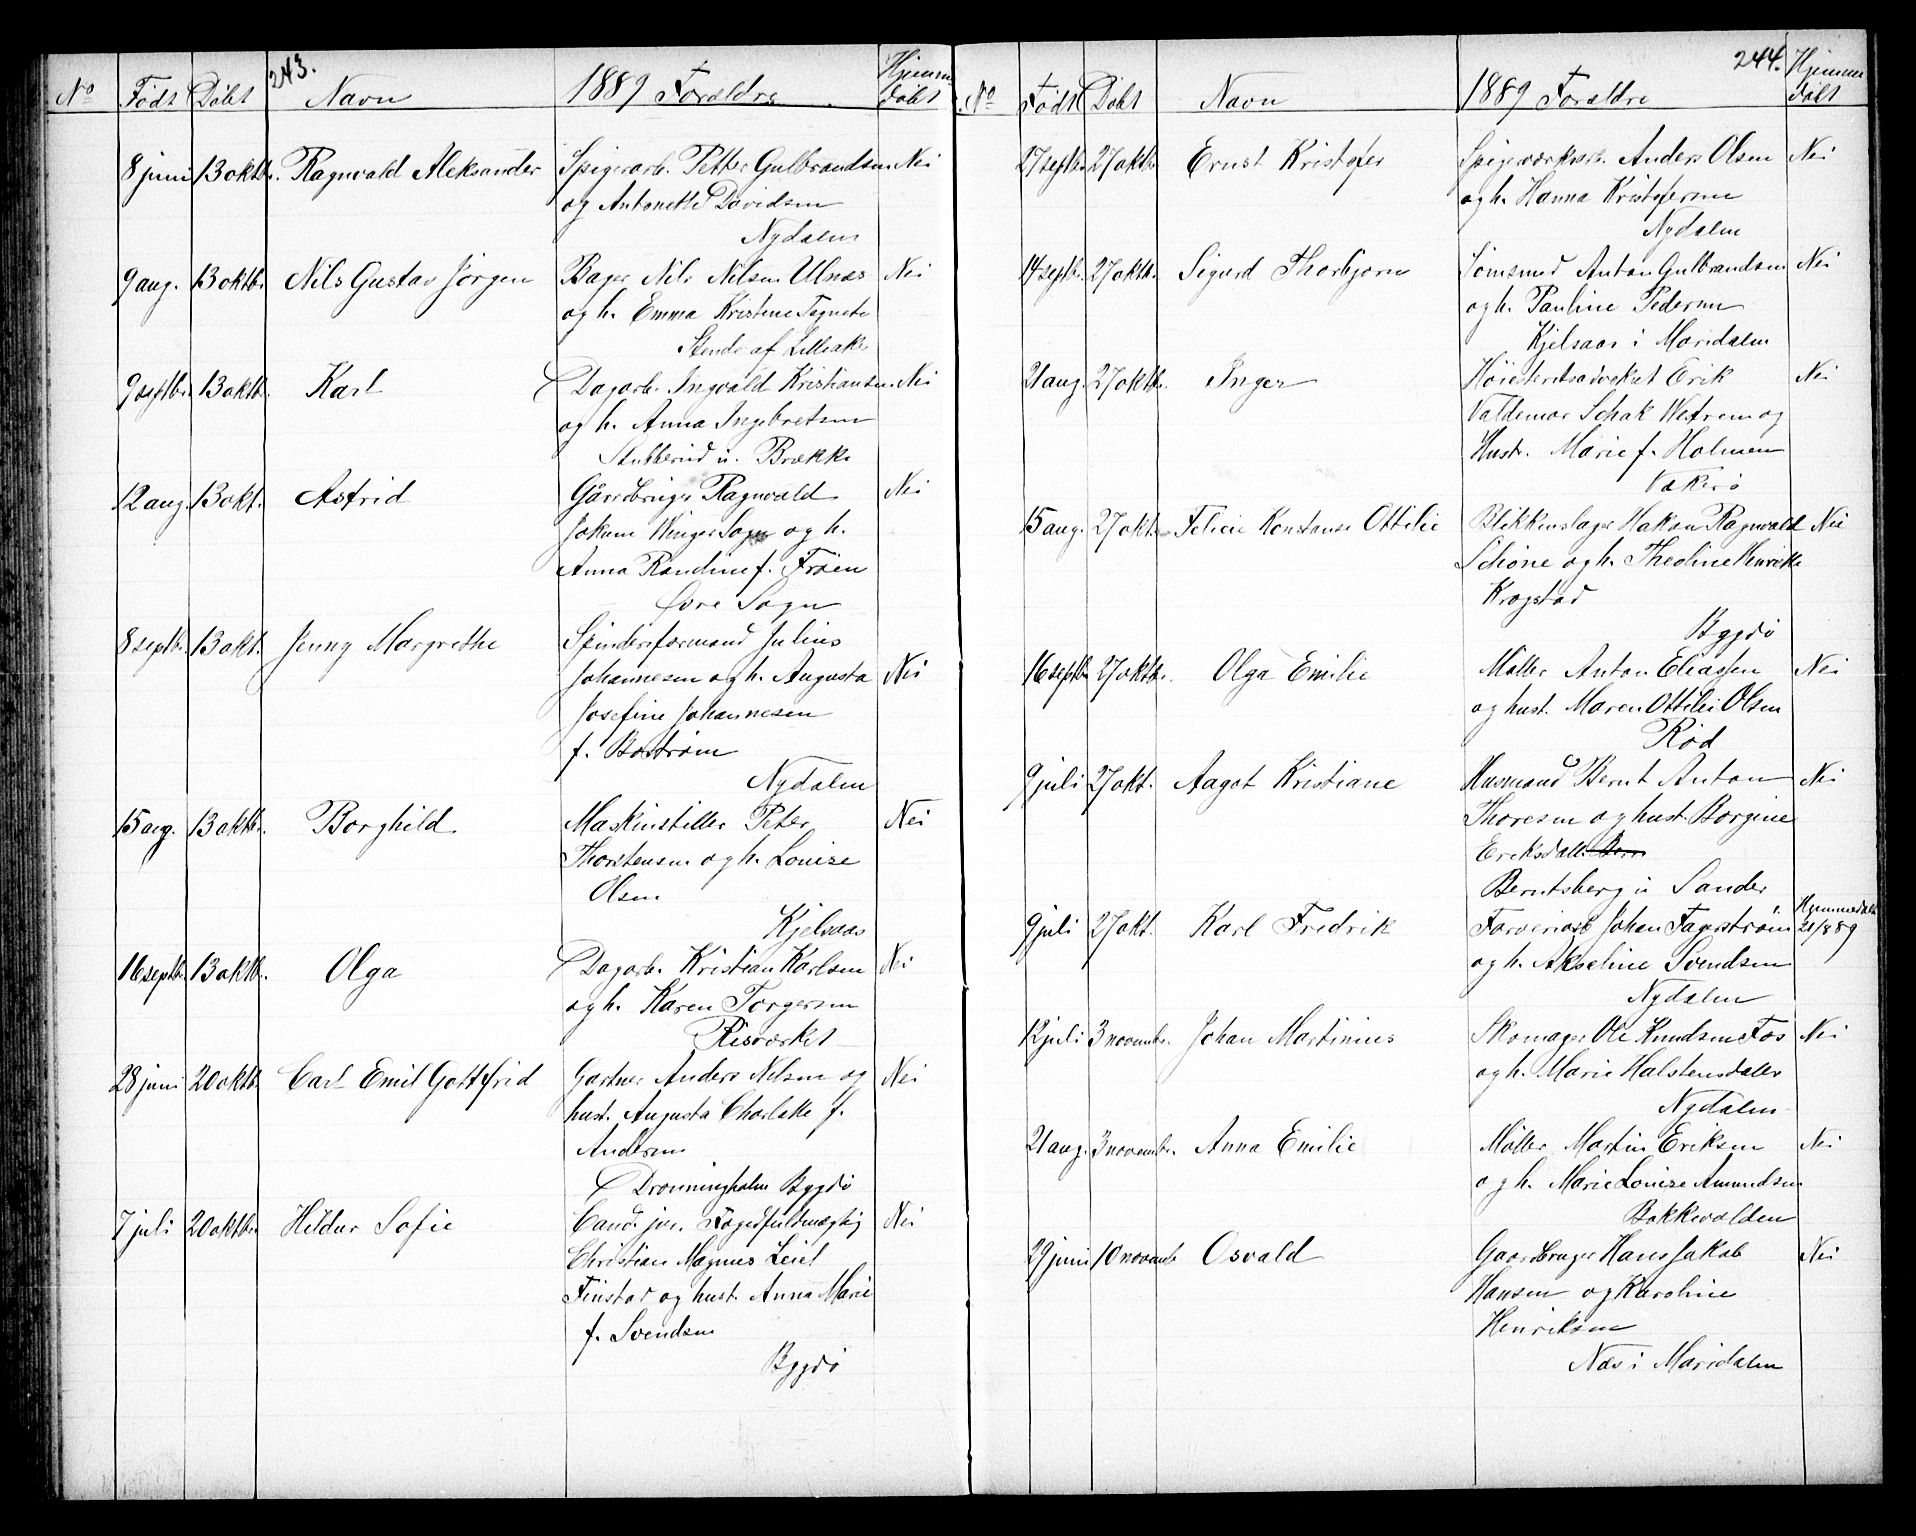 243.
No Født Døbt Navn 1889 Forældre Hjemme
døbt
8 juni 13 oktb. Ragnvald Aleksander Spigerarb. Petter Gulbrandsen Nei
og Antonette Davidsen
Nydalen
9 aug. 13 oktb. Nils Gustav Jørgen Bager Nils Nilsen Ulnæs Nei
og h. Emma Kristine
af Lilleaker
9 septbr. 13 oktb. Karl Dagarb. Ingvald Kristiansen Nei
og h. Anna Ingebretsen
Stubberud u. Brække
12 aug. 13 okt. Astrid Gårdbruger Ragnvald Nei
Jokum Winger Sogn og h.
Anna Randine f. Frøen
Øvre Sogn
8 septbr. 13 okt. Jenny Margrethe Spinderiformand Julius
Johannesen og h. Augusta Nei
Josefine Johannesen
f. Bostrøm
Nydalen
15 aug. 13 oktb. Borghild Maskinstiller Peter Nei
Thorstensen og h. Louise
Olsen
Kjelsaas
16 septb. 13 oktb. Olga Dagarb. Kristian Karlsen Nei
og h. Karen Torgersen
Risværket
28 juni 20 oktb. Carl Emil Gottfrid Gartner Anders Nilsen og Nei
hust. Augusta Charlotte f.
Andersen
Dronningholm Bygdø
7 juli 20 oktbr. Hildur Sofie Cand. jur. Fogedfuldmægtig Nei
Christian Magnus
Finstad og hust. Anna Marie
f. Svendsen
Bygdø
244.
No Født Døbt Navn 1889 Forældre Hjemme
døbt
27 septbr. 27 oktb. Ernst Kristofer Spigerværksarb. Anders Olsen Nei
og h. Hanna Kristofersen
Nydalen
14 septb. 27 oktb. Sigurd Thorbjørn Sømsmed Anton Gulbrandsen Nei
og h. Pauline Pedersen
Kjelsaas i Maridalen
21 aug. 27 oktb. Inger Høiesteretsadvokat Erik Nei
Valdemar Schak og
Hust. Marie f. Holmen
Vækerø
15 aug. 27 okt. Felicie Konstanse Ottilie Blikkenslager Hakon Ragnvald Nei
Schøne og h. Theoline Henrikke
Krogstad
Bygdø
16 septbr. 27 oktb. Olga Emilie Møller Anton Eliassen Nei
og hust. Maren Ottilie Olsen
Rød
9 juli 27 okt. Aagot Kristiane Husmand Bernt Anton Nei
Thoresen og hust. Borgine
Eriksdatter
Berntsberg u Sander
9 juli 27 okt. Karl Fredrik Farveriarb Johan Fagerstrøm Hjemmedøbt
21/8 89
og h. Akseline Svendsen
Nydalen
12 juli 3 novembr. Johan Martinius Skomager Ole Knudsen Fos Nei
og h. Marie Halstensdatter
Nydalen
21 aug. 3 novembr. Anna Emilie Møller Martin Eriksen Nei
og h. Marie Louise Amundsen
Bakkevolden
29 juni 10 novemb Osvald Gaardbruger Hans Jakob Nei
Hansen og Karoline
Henriksen
Næs i Maridalen